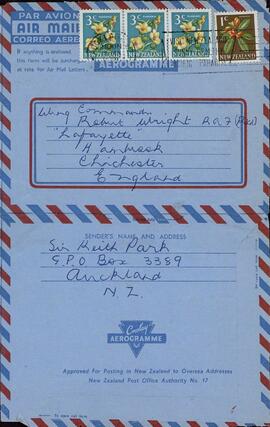 PAR AVION
AIR MAIL
CORREO AEREO
If anything is enclosed
this form will be surcharged
at rate for Air Mail Letters.
AEROGRAMME
3c 3c 3c 1c
NEW ZEALAND NEW ZEALAND NEW ZEALAND NEW ZEALAND
Wing Commander
Robert Wright RAF
"Lafayette"
Hambrook
Chichester
England
SENDER'S NAME AND ADDRESS
Sir Keith Park
G.P.O Box 3389
Auckland
N.Z.
AEROGRAMME
Approved for Posting in New Zealand to Oversea Addresses
New Zealand Post Office Authority No. 17
To open cut here